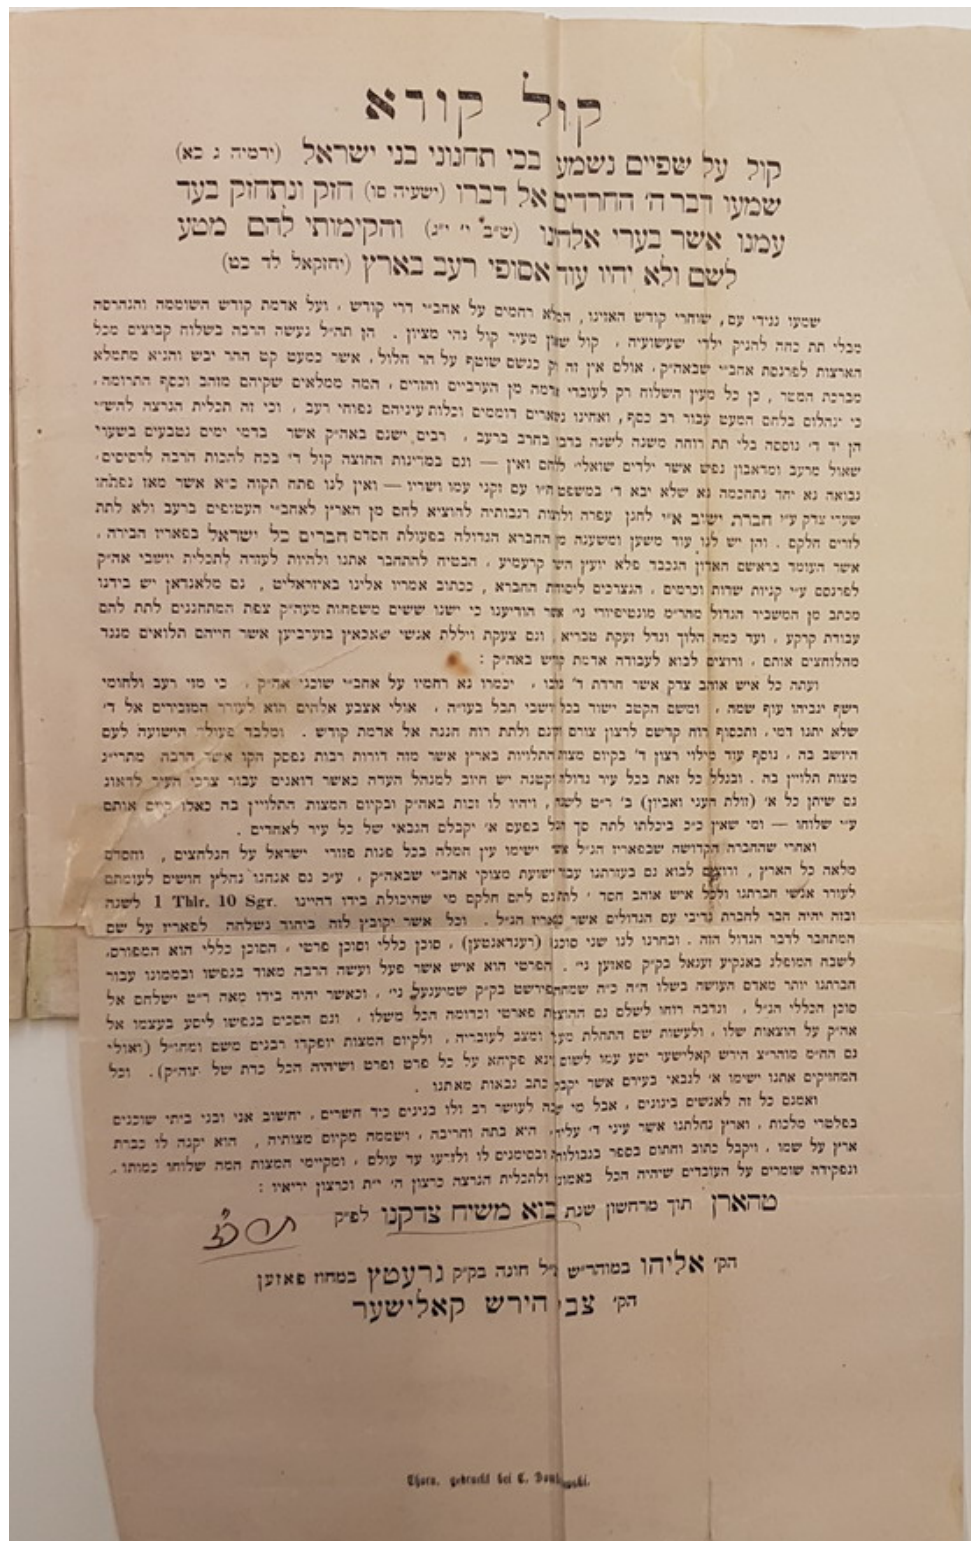 קול קורא
קול על שפיים נשמע בכי תחנוני בני ישראל (ירמיה ג כא)
שמעו דבר ה׳ החרדים אל דברו (ישעיה סו) חזק ונתחזק בעד
עמנו אשר בערי אלהנו (ש״ב י׳ י״ג) והקימותי להם מטע
לשם ולא יהיו עוד אסופי רעב בארץ (יחזקאל לד כט)
שמעו נגידי עם, שוחרי קודש האזינו, המלא רחמים על אחב״י דרי קודש, ועל אדמת קודש השוממה והנהרסה
מבלי תת כחה להניק ילדי שעשועיה, קול שאון מעיר קול נהי מציון. הן תה״ל נעשה הרבה בשלוח קבוצים מכל
הארצות לפרנסת אחב״י שבאה״ק, אולם אין זה רק כגשם שוטף על הר חלול, אשר כמעט קט ההר יבש והגיא מתמלא
מברכת המטר, כן כל מעין השלוח רק לעובדי אדמה מן הערביים והזרים, המה ממלאים שקיהם מזהב וכסף התרומה,
כי ינהלום בלחם המעט עבור רב כסף, ואחינו נשארים דוממים וכלות עיניהם נפוחי רעב, וכי זה תכלית הנרצה להש״י
הן יד ד׳ נוססה בלי תת רוחה משנה לשנה ברבו בחרב ברעב, רבים ישנם באה״ק אשר בדמי ימים נטבעים בשערי
שאול מרעב ומדאבון נפש אשר ילדים שואלי׳ לחם ואין — וגם במדינות החוצה קול ד׳ בכח להכות הרבה לרסיסים,
נבואה נא יחד נתחכמה נא שלא יבא ד׳ במשפט ח״ו עם זקני עמו ושריו — ואין לנו פתח תקוה כ״א אשר מאז נפתחו
שערי צדק ע״י חברת ישוב א״י לחנן עפרה ולרצות רגבותיה להוציא לחם מן הארץ לאחב״י העטופים ברעב ולא לתת
לזרים חלקם. והן יש לנו עוד משען ומשענה מהחברא הגדולה בפעולת חסדם חברים כל ישראל בפאריז הבירה,
אשר העומד בראשם האדון הנכבד פלא יועץ השר קרעמיע, הבטיח להתחבר אתנו ולהיות לעזרה לתכלית יושבי אה״ק
לפרנסם ע״י קניות שדות וכרמים, הנצרכים ליסודת החברא, ככתוב אמריו אלינו באיזראליט, גם מלאנדאן יש בידנו
מכתב מן המשביר הגדול מהר״מ מונטיפיורי ני׳ אשר הודיענו כי ישנו ששים משפחות מעה״ק צפת המתחננים לתת להם
עבודת קרקע, ועד כמה הלוך וגדל זעקת טבריא, וגם צעקת ויללת אנשי שאכאין בוערביען אשר חייהם תלואים מנגד
מהלוחצים אותם, ורוצים לבוא לעבודה אדמת קודש באה״ק:
ועתה כל איש אוהב צדק אשר חרדת ד׳ בלבו, יכמרו נא רחמיו על אחב״י שוכני אה״ק, כי מזי רעב ולחומי
רשף יגביהו עוף שמה, ומשם הקטב ישוד בכל יושבי תבל בעו״ה, אולי אצבע אלהים הוא לעורר המזכירים אל ד׳
שלא יתנו דמי, ותכסוף רוח קדשם לרצון צורם קונם ולתת רוח חנינה אל אדמת קודש. ומלבד פעולת הישועה לעם
היושב בה, נוסף עוד מילוי רצון ד׳ בקיום מצות התלויות בארץ אשר מזה דורות רבות נפסק הקו אשר הרבה מתרי״ג
מצות תלויין בה. ובגלל כל זאת בכל עיר גדולה וקטנה יש חיוב למנהל העדה כאשר דואגים עבור צרכי העיר לדאוג
גם שיתן כל א׳ (זולת העני ואביון) ב׳ ר״ט לשנה, ויהיו לו זכות באה״ק ובקיום המצות התלויין בה כאלו קיים אותם
ע״י שלוחו — ומי שאין כ״כ ביכלתו לתת סך הנ״ל בפעם א׳ יקבלם הגבאי של כל עיר לאחדים.
ואחרי שהחברת הקדושה שבפאריז הנ״ל אשר ישימו עין חמלה בכל פנות פזורי ישראל על הנלחצים, וחסדם
מלאה כל הארץ, ורוצים לבוא גם בעזרתנו עבור ישועת מצוקי אחב״י שבאה״ק, ע״כ גם אנחנו נחליץ חושים לעומתם
לעורר אנשי חברתנו ולכל איש אוהב חסד, לתת גם להם חלקם מי שהיכולת בידו דהיינו 1 Thlr. 10 Sgr. לשנה
ובזה יהיה חבר לחברת נדיבי עם הגדולים אשר בפאריז הנ״ל. וכל אשר יקובץ לזה ביחוד נשלחה לפאריז על שם
המתחבר לדבר הגדול הזה. ובחרנו לנו שני סוכנים (רענדאנטען), סוכן כללי וסוכן פרטי, הסוכן כללי הוא המפורסם,
לשבח המופלג באנקיע זענאל בק״ק פאזען ני׳. הפרטי הוא איש אשר פעל ועשה הרבה מאוד בנפשו ובממונו עבור
חברתנו יותר מאדם העושה בשלו ה״ה כ״ה שמחה פירשט בק״ק שמיעגעל ני׳, וכאשר יהיה בידו מאה ר״ט ישלחם אל
סוכן הכללי הנ״ל, ונדבה רוחו לשלם גם ההוצאת פארטי וכדומה הכל משלו, וגם הסכים בנפשו ליסע בעצמו אל
אה״ק על הוצאות שלו, ולעשות שם התחלת מעמד ומצב לעובריה, ולקיום המצות יופקדו רבנים משם ומחו״ל (ואולי
גם הה״מ מוהר״צ הירש קאלישער יסע עמו לשום עינא פקיחא על כל פרט ופרט ושיהיה הכל כדת של תוה״ק). וכל
המחזיקים אתנו ישימו א׳ לגבאי בעירם אשר יקבל כתב גבאות מאתנו.
ואמנם כל זה לאנשים בינונים, אבל מי שזכה לעושר רב ולו בנינים כיד חשרים, יחשוב אני ובני ביתי שוכנים
בפלטרי מלכות, וארץ נחלתנו אשר עיני ד׳ עליה, היא בתה וחריבה, ושממה מקיום מצותיה, הוא יקנה לו כברת
ארץ על שמו, ויקבל כתוב וחתום בספר בגבולותיה ובסימנים לו ולזרעו עד עולם, ומקיימי המצות המה שלוחו כמותו,
ונפקידה שומרים על העובדים שיהיה הכל באמונה ולתכלית הנרצה כרצון ה׳ י״ת וכרצון יריאיו:
טהארן תוך מרחשון שנת בוא משיח צדקנו לפ״ק
הק׳ אליהו במוהר״ש ז״ל חונה בק״ק גרעטץ במחוז פאזען
הק׳ צבי הירש קאלישער
Thorn, gedruckt bei C. Dombrowski.